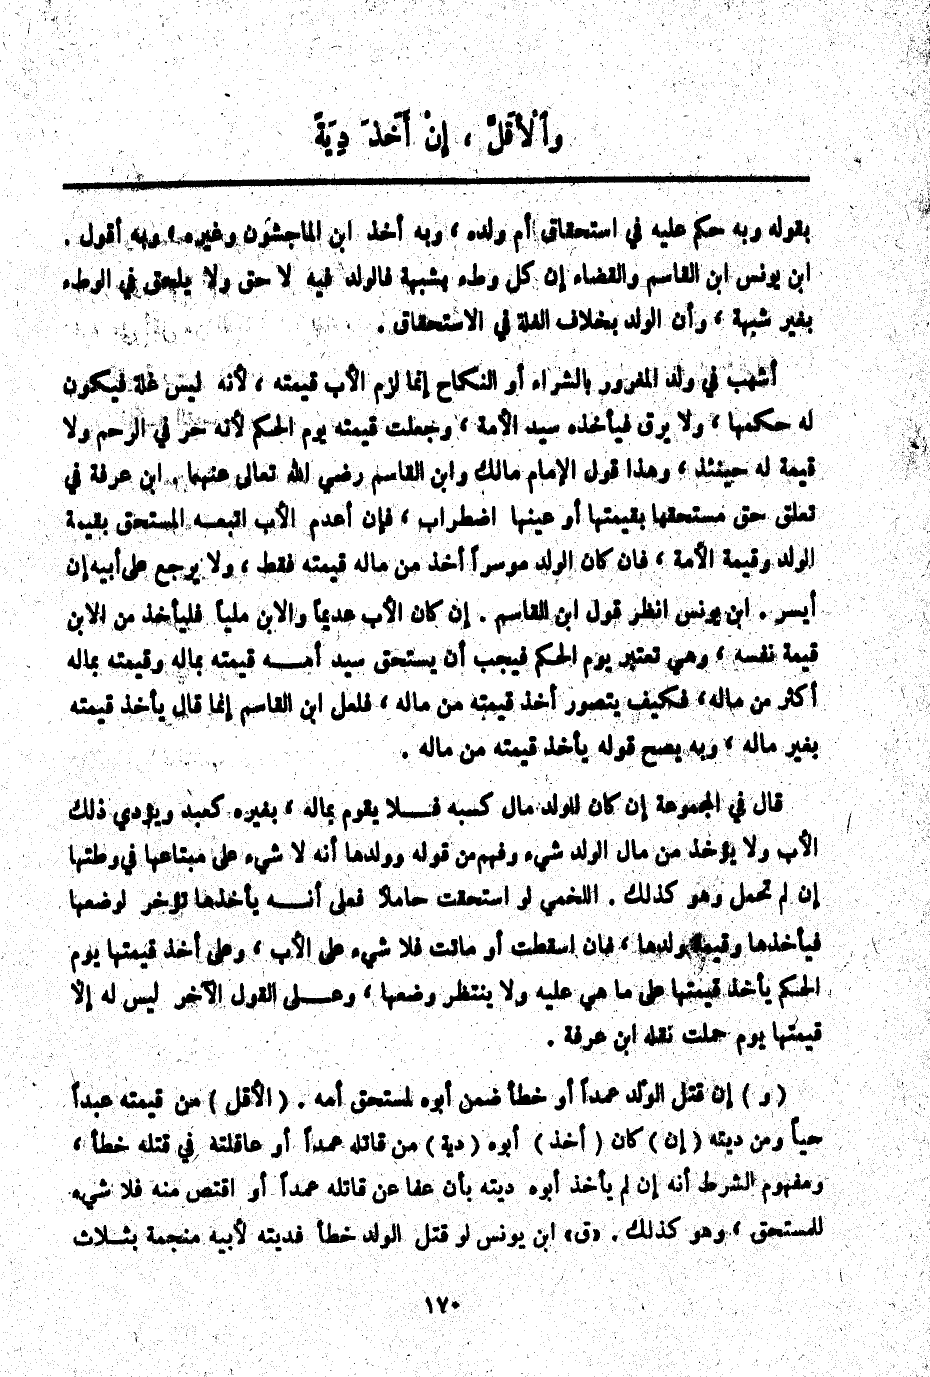 وَٱلْأَقَلَّ ، إِنْ أَخَذَ دِيَةً
بقوله وبه حكم عليه في استحقاق أم ولده ، وبه أخذ ابن الماجشون وغيره ، وبه أقول .
ابن يونس ابن القاسم والقضاء إن كل وطء بشبهة فالولد فيه لا حق ولا يلحق في الوطء
بغير شبهة ، وأن الولد بخلاف الغلة في الاستحقاق .
أشهب في ولد المغرور بالشراء أو النكاح إنما لزم الأب قيمته ، لأنه ليس غلة فيكون
له حكمها ، ولا يرق فيأخذه سيد الأمة ، وجعلت قيمته يوم الحكم لأنه حر في الرحم ولا
قيمة له حينئذ ، وهذا قول الإمام مالك وابن القاسم رضي الله تعالى عنهما . ابن عرفة في
تعلق حق مستحقها بقيمتها أو عينها اضطراب ، فإن أعدم الأب اتبعـه المستحق بقيمة
الولد وقيمة الأمة ، فان كان الولد موسراً أخذ من ماله قيمته فقط ، ولا يرجع على أبيه إن
أيسر . ابن يونس انظر قول ابن القاسم . إن كان الأب عديماً والابن ملياً فليأخذ من الابن
قيمة نفسه ، وهي تعتبر يوم الحكم فيجب أن يستحق سيد أمـــه قيمته بماله وقيمته بماله
أكثر من ماله ، فكيف يتصور أخذ قيمته من ماله ، فلعل ابن القاسم إنما قال يأخذ قيمته
بغير ماله ، وبه يصح قوله يأخذ قيمته من ماله .
قال في المجموعة إن كان للولد مال كسبه فـــلا يقوم بماله ، بغيره كعبد ويؤدي ذلك
الأب ولا يؤخذ من مال الولد شيء وفهم من قوله وولدها أنه لا شيء على مبتاعها في وطئها
إن لم تحمل وهو كذلك . اللخمي لو استحقت حاملاً فعلى أنـــه يأخذها تؤخر لوضعها
فيأخذها وقيمة ولدها ، فان اسقطت أو ماتت فلا شيء على الأب ، وعلى أخذ قيمتها يوم
الحكم يأخذ قيمتها على ما هي عليه ولا ينتظر وضعها ، وعـــلى القول الآخر ليس له إلا
قيمتها يوم حملت نقله ابن عرفة .
( و ) إن قتل الولد عمداً أو خطأ ضمن أبوه لمستحق أمه . ( الأقل ) من قيمته عبداً
حياً ومن ديته ( إن ) كان ( أخذ ) أبوه ( دية ) من قاتله عمداً أو عاقلتة في قتله خطأ ،
ومفهوم الشرط أنه إن لم يأخذ أبوه ديته بأن عفا عن قاتله عمداً أو اقتص منه فلا شيء
للمستحق ، وهو كذلك . «ق» ابن يونس لو قتل الولد خطأ فديته لأبيه منجمة بثـلاث
١٧٠